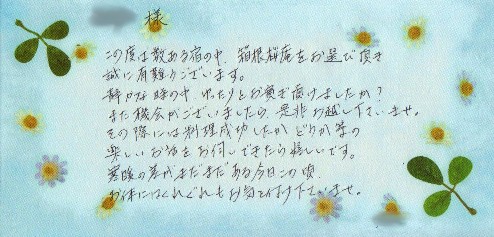 様
この度は数ある宿の中、箱根桜庵をお選び頂き
誠に有難うございます。
静かな時の中、ゆったりとお寛ぎ頂けましたか？
また機会がございましたら、是非お越し下さいませ。
その際には料理成功したか どうか等の
楽しいお話をお伺いできたら嬉しいです。
寒暖の差がまだまだある今日この頃、
お体にはくれぐれもお気を付け下さいませ。